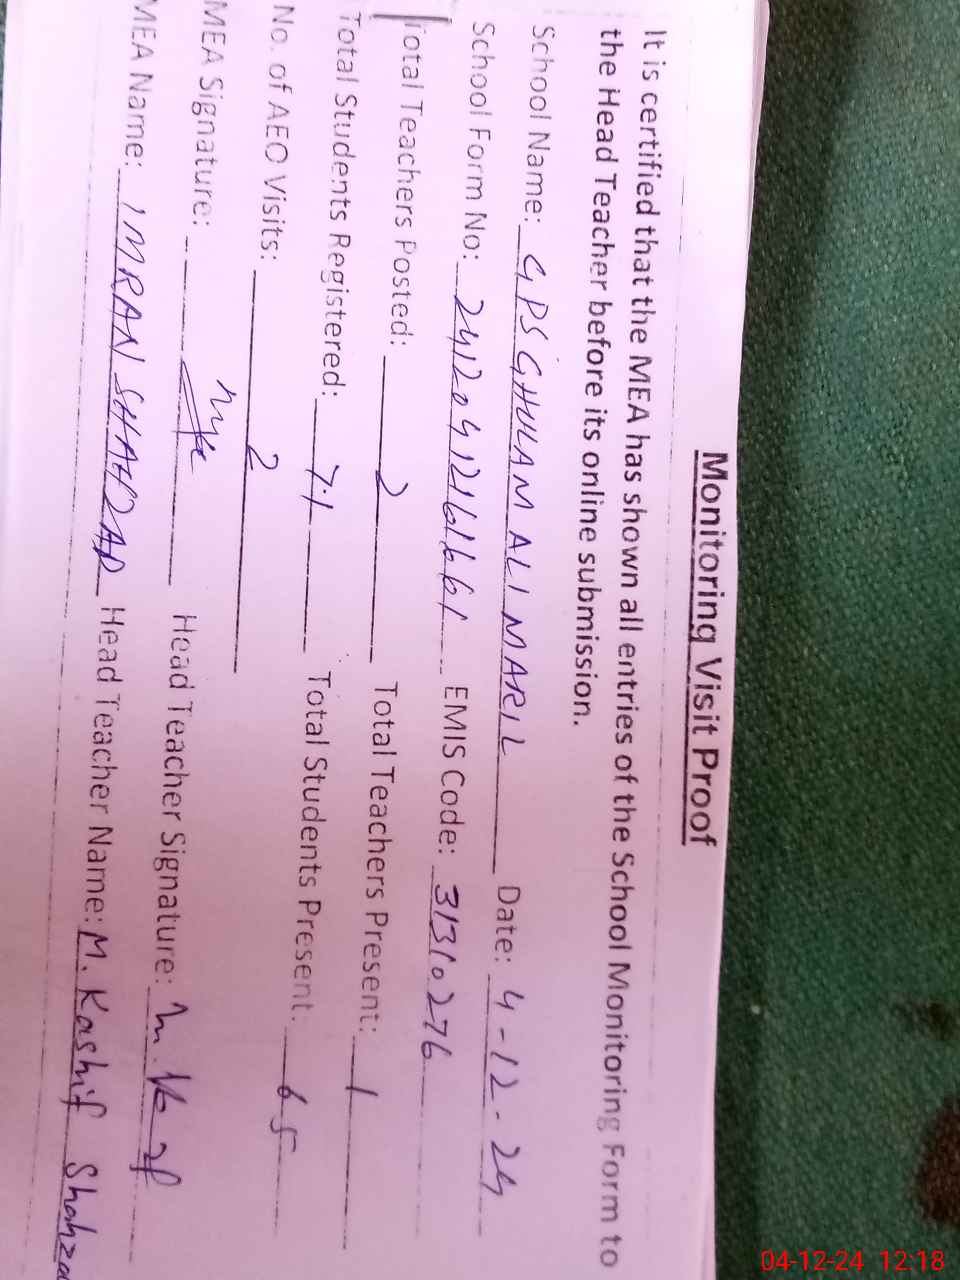 Monitoring Visit Proof
It is certified that the MEA has shown all entries of the School Monitoring Form to
the Head Teacher before its online submission.
School Name: GPS GHULAM ALI MARIL Date: 4-12-24
School Form No: 24120412161661 EMIS Code: 31310276
Total Teachers Posted: 2 Total Teachers Present: 1
Total Students Registered: 71 Total Students Present: 65
No. of AEO Visits: 2
MEA Signature: Head Teacher Signature:
MEA Name: IMRAN SHAHZAD Head Teacher Name: M. Kashif
04-12-24 12:18